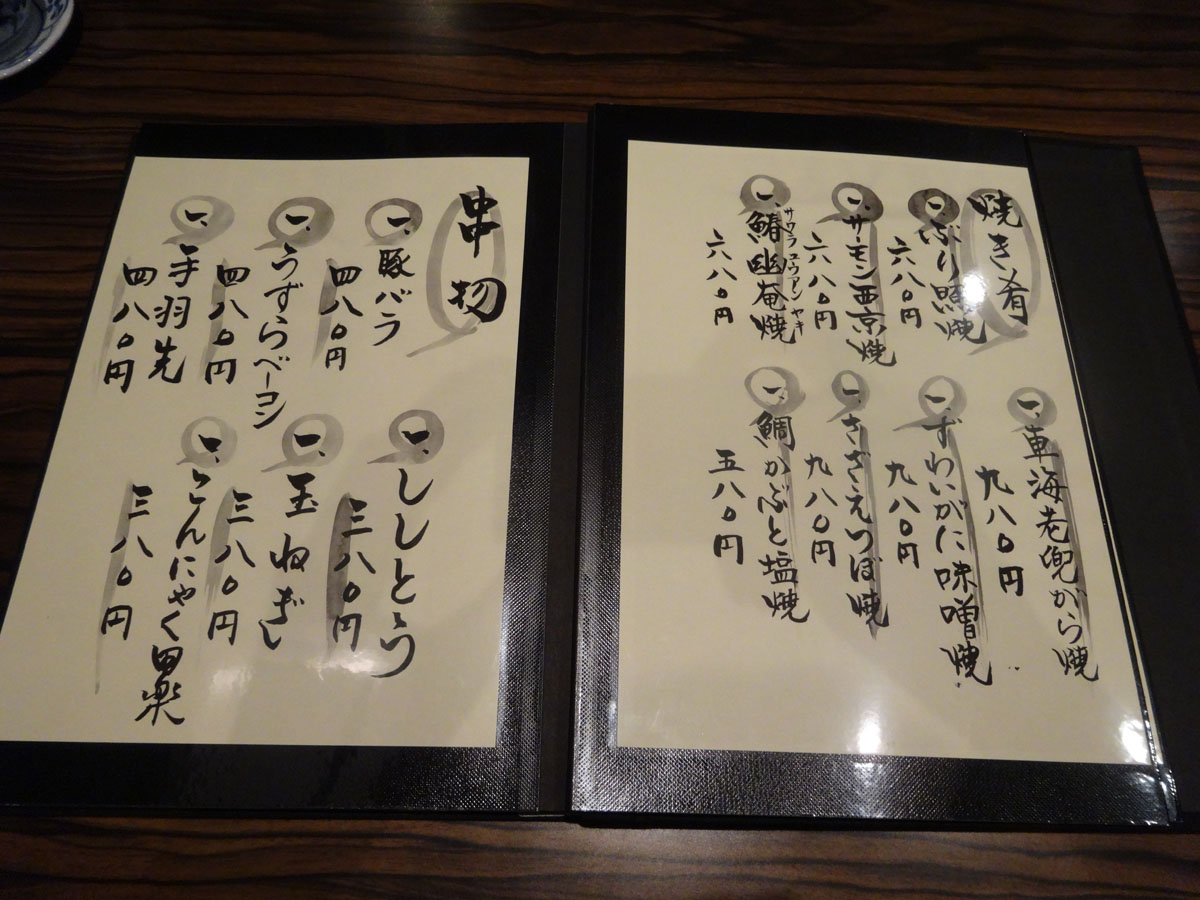 焼き肴
一、ぶり照焼
六八〇円
一、サーモン西京焼
六八〇円
一、鰆幽庵焼
サワラユウアンヤキ
六八〇円
一、車海老兜がら焼
九八〇円
一、ずわいがに味噌焼
九八〇円
一、さざえつぼ焼
九八〇円
一、鯛かぶと塩焼
五八〇円
串物
一、豚バラ
四八〇円
一、うずらベーコン
四八〇円
一、手羽先
四八〇円
一、ししとう
三八〇円
一、玉ねぎ
三八〇円
一、こんにゃく田楽
三八〇円